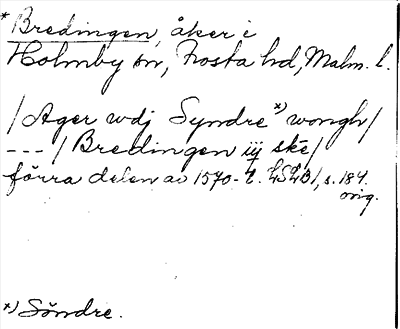 * Bredingen, åker i
Holmby sn, Frosta hd, Malm. l.
/Ager wdj Syndre *) wongh/
---/Bredingen iij ske/
förra delen av 1570-t. LSLB1, s. 184.
orig.
*) Söndre.